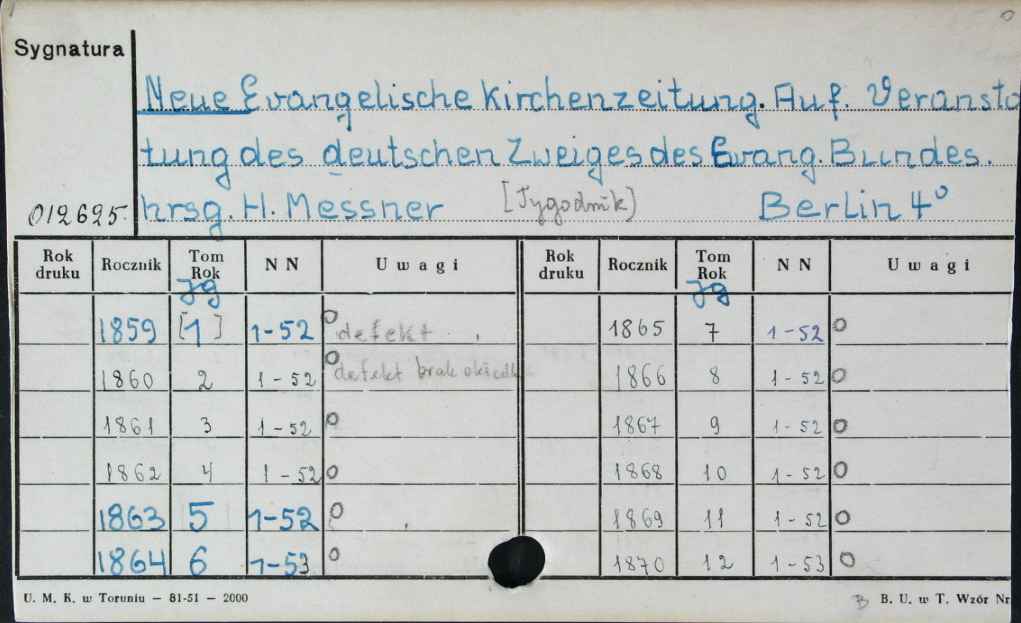 Sygnatura
Neue Evangelische Kirchenzeitung. Auf. Veransta
tung des deutschen Zweiges des Evang. Bundes.
012625 hrsg. H. Messner [Tygodnik) Berlin 4°
Rok druku Rocznik Tom Rok Jg NN Uwagi Rok druku Rocznik Tom Rok Jg NN Uwagi
1859 [1] 1-52 defekt 1865 7 1-52
1860 2 1-52 defekt brak 1866 8 1-52
1861 3 1-52 1867 9 1-52
1862 4 1-52 1868 10 1-52
1863 5 1-52 1869 11 1-52
1864 6 1-53 1870 12 1-53
U. M. K. w Toruniu — 81-51 — 2000 B B. U. w T. Wzór Nr